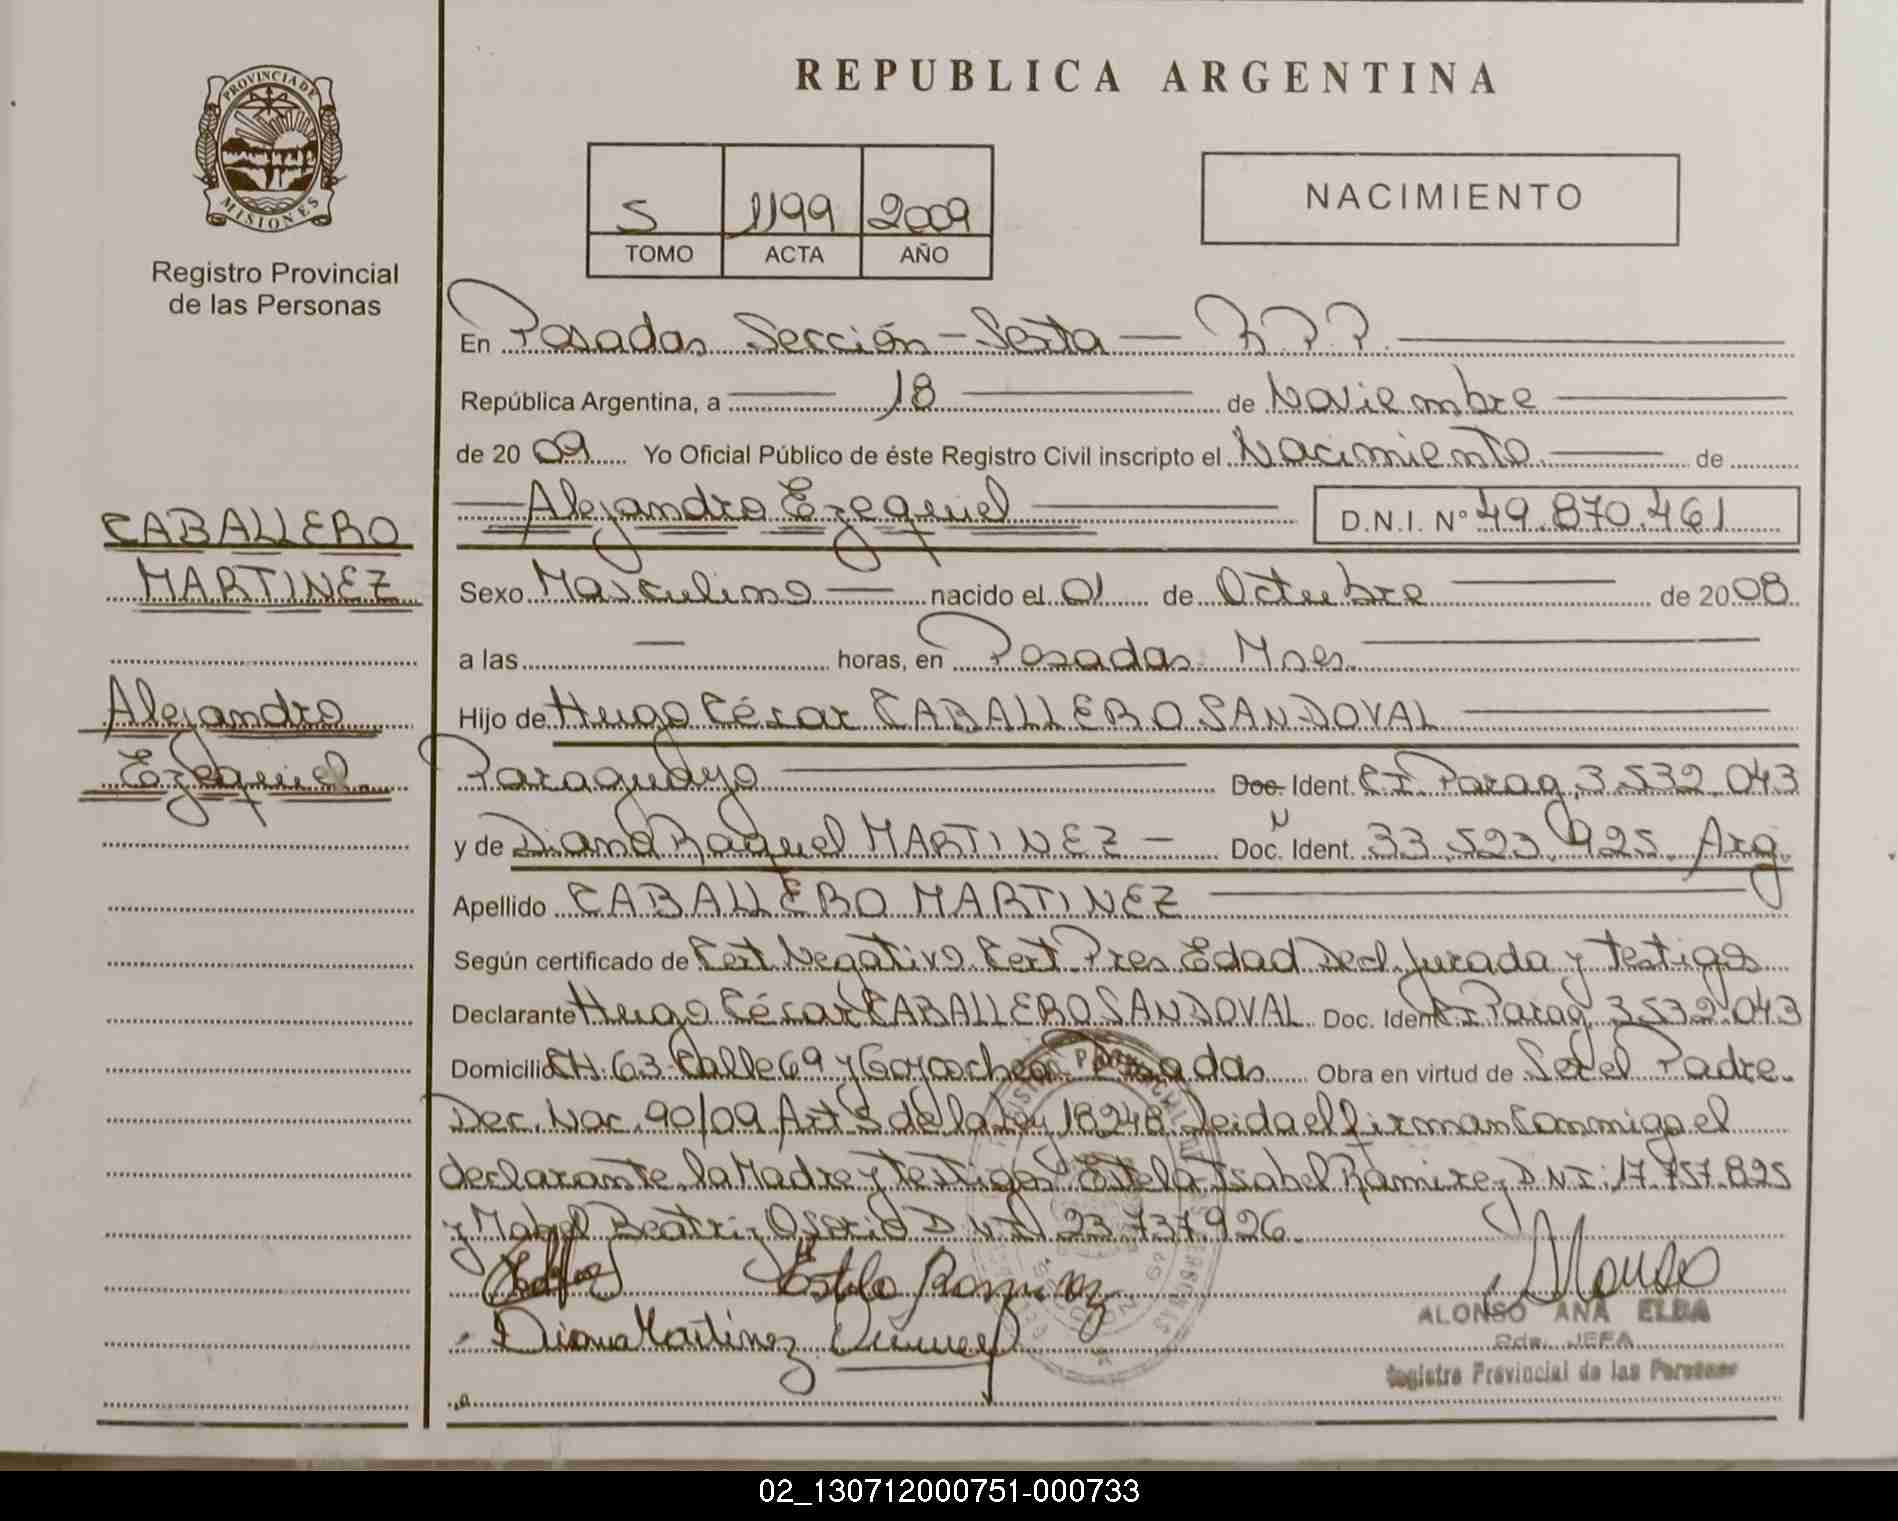 REPUBLICA ARGENTINA
PROVINCIA DE
MISIONES
Registro Provincial
de las Personas
5 1199 2009
TOMO ACTA AÑO
NACIMIENTO
En Posadas Sección - Sexta - R.P.P.
República Argentina, a 18 de Noviembre
de 2009 Yo Oficial Público de éste Registro Civil inscripto el Nacimiento de
Alejandro Ezequiel D.N.I. N° 49.870.461
CABALLERO
MARTINEZ
Alejandro
Ezequiel
Sexo Masculino nacido el 01 de Octubre de 2008
a las — horas, en Posadas Mnes.
Hijo de Hugo César CABALLERO SANDOVAL
Paraguayo Doc. Ident. CI Parag. 3.532.043
y de Diana Raquel MARTINEZ - Doc. N Ident. 33.523.925 Arg.
Apellido CABALLERO MARTINEZ
Según certificado de Cert Negativo Cert. Pres Edad Decl. Jurada y testigos
Declarante Hugo César CABALLERO SANDOVAL Doc. Ident CI Parag 3.532.043
Domicilio CH. 63 Calle 69 y Goycochea Posadas Obra en virtud de Ser el Padre.
Dec. Nac. 90/09 Art 5 de la Ley 18248 Leida el firman conmigo el
declarante, la Madre y testigos Estela Isabel Ramirez DNI: 17.757.825
y Mabel Beatriz Osorio DNI 23.737.926.
Estela Ramirez
Diana Martinez
Alonso
ALONSO ANA ELBA
JEFA
Registro Provincial de las Personas
02_130712000751-000733